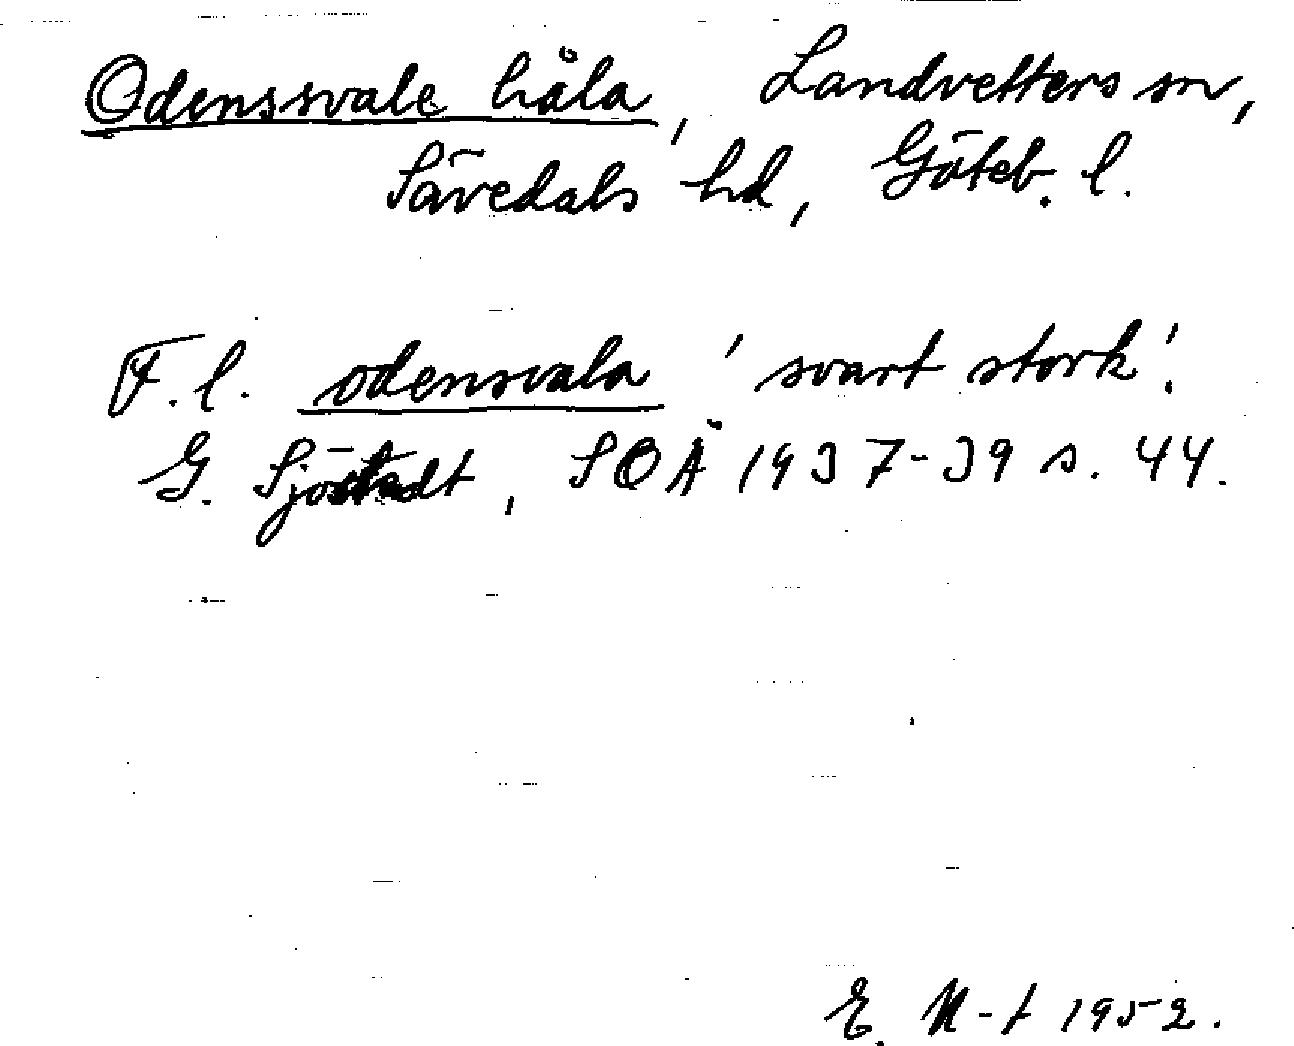 Odenssvale håla, Landvetters sn,
Sävedals hd, Göteb. l.
F. l. odensvala 'svart stork'.
G. Sjöstedt, SOÅ 1937-39 s. 44.
E. N-t 1952.